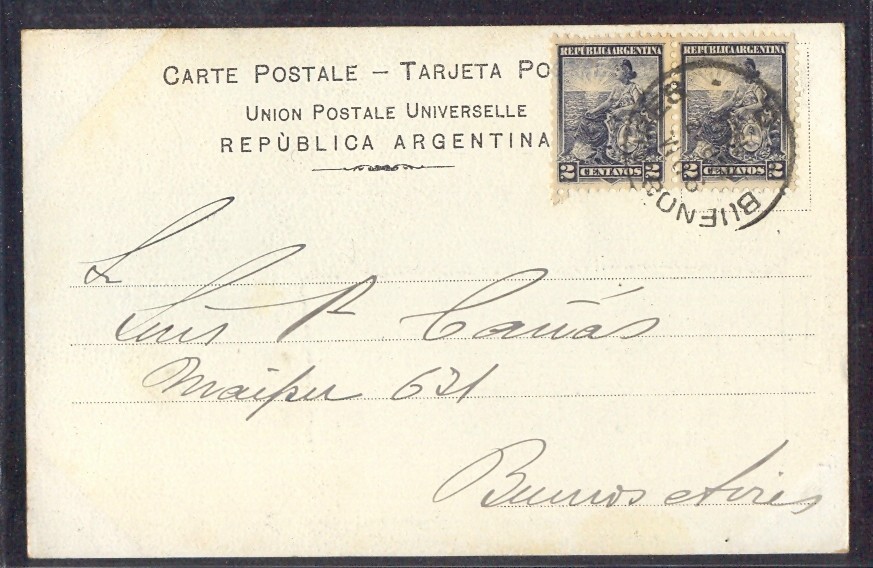 CARTE POSTALE – TARJETA PO
UNION POSTALE UNIVERSELLE
REPÙBLICA ARGENTINA
REPÚBLICA ARGENTINA
2 CENTAVOS 2
REPÚBLICA ARGENTINA
2 CENTAVOS 2
BUENOS
Luis P. Cañás
Maipu 631
Buenos Aires